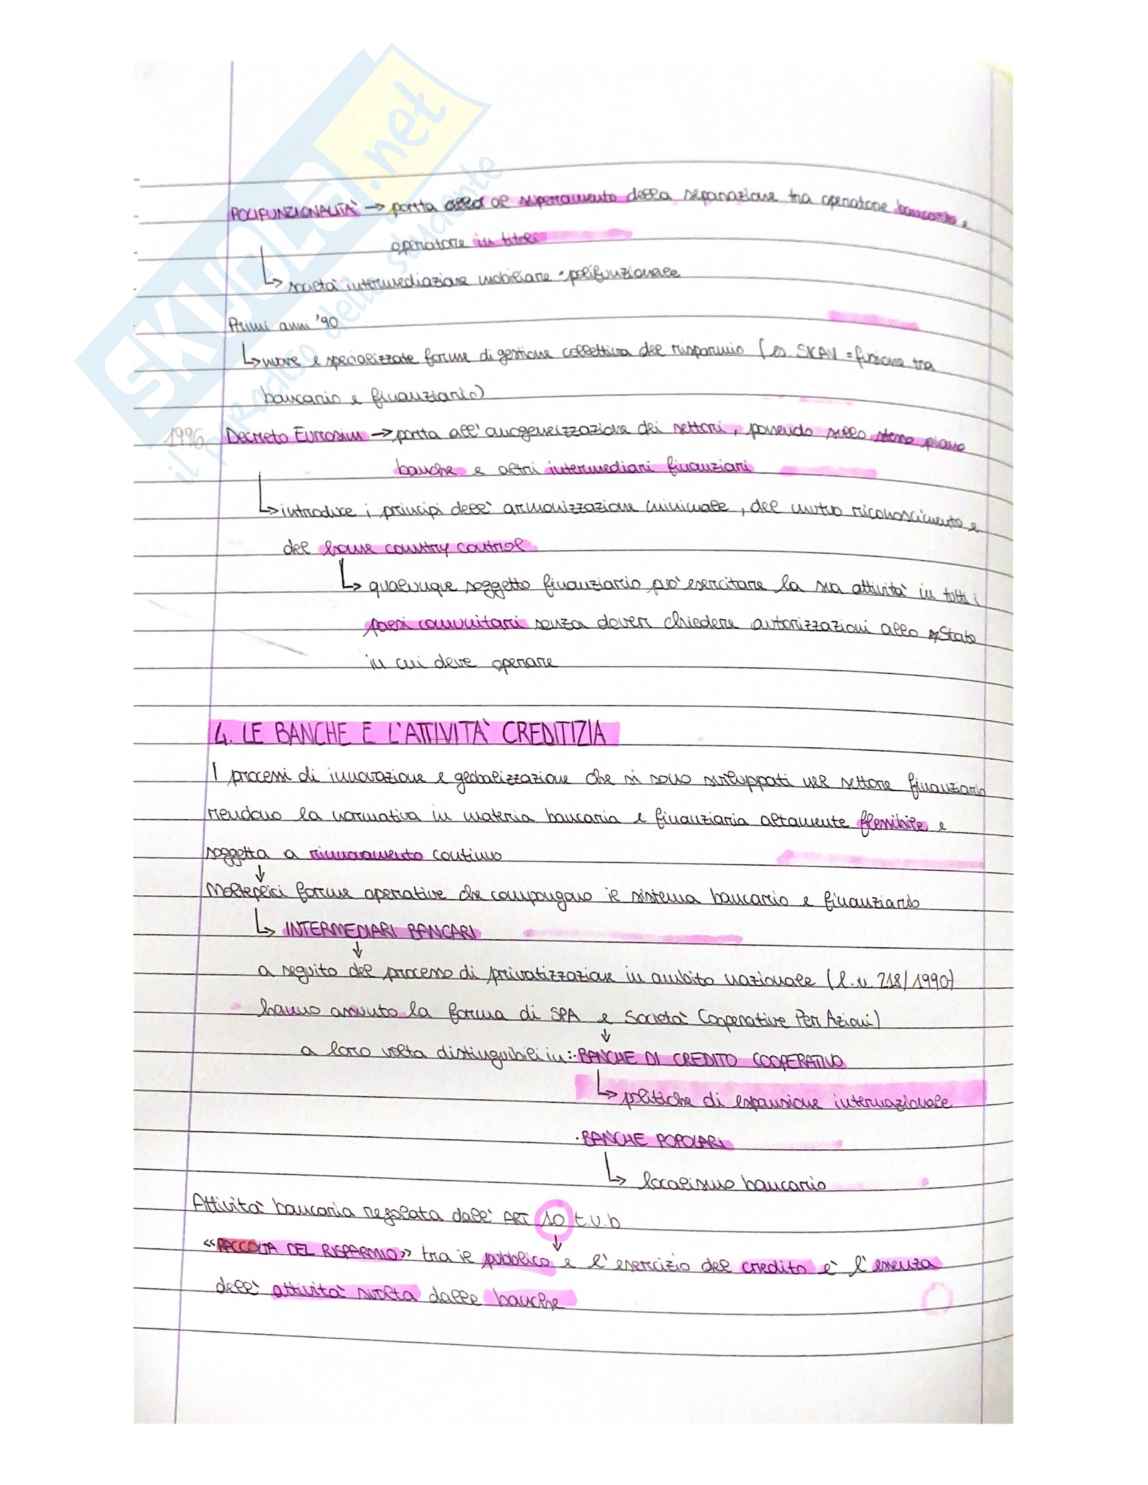 SKUOLA.net
il paradiso dello studente
POLIFUNZIONALITA' → porta al superamento della separazione tra operatore bancario e
operatore in titoli
↳ società intermediazione mobiliare · polifunzionale
Primi anni '90
↳ nuove e specializzate forme di gestione collettiva del risparmio (es. SICAV = fusione tra
bancario e finanziario)
1996 Decreto Eurosim → porta all'omogeneizzazione dei settori, ponendo sullo stesso piano
banche e altri intermediari finanziari
↳ introduce i principi dell'armonizzazione minimale, del mutuo riconoscimento e
del home country control
↳ qualunque soggetto finanziario può esercitare la sua attività in tutti i
paesi comunitari senza dover chiedere autorizzazioni allo Stato
in cui deve operare
4. LE BANCHE E L'ATTIVITA' CREDITIZIA
I processi di innovazione e globalizzazione che si sono sviluppati nel settore finanziario
rendono la normativa in materia bancaria e finanziaria altamente flessibile e
soggetta a rinnovamento continuo
↓
Molteplici forme operative che compongono il sistema bancario e finanziario
↳ INTERMEDIARI BANCARI
↓
a seguito del processo di privatizzazione in ambito nazionale (l.n. 218/1990)
hanno assunto la forma di SPA e Società Cooperative Per Azioni)
↓
a loro volta distinguibili in: · BANCHE DI CREDITO COOPERATIVO
↳ politiche di espansione internazionale
· BANCHE POPOLARI
↳ localismo bancario
Attività bancaria regolata dall' ART 10 t.u.b
↓
"RACCOLTA DEL RISPARMIO" tra il pubblico e l'esercizio del credito è l'essenza
dell' attività svolta dalle banche